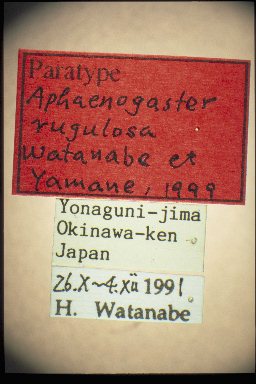 Paratype
Aphaenogaster
rugulosa
Watanabe et
Yamane, 1999
Yonaguni-jima
Okinawa-ken
Japan
26.X~4.Xii 1991
H. Watanabe